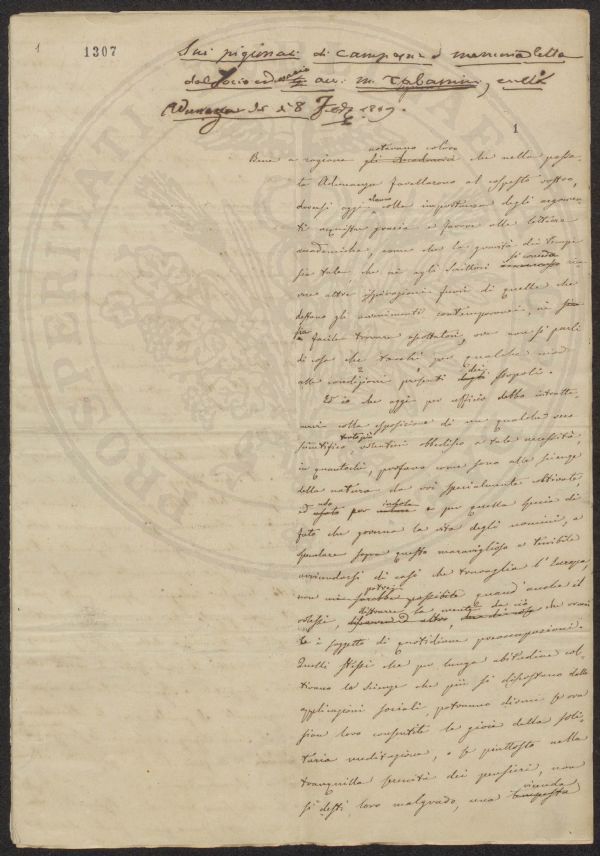 1
1307
Sui pigionali di campagna memoria letta
dal Socio ord. M. Tabarrini, nella
Adunanza de' 18
1
notavano coloro
Bene a ragione gli Accademici che nella passa
ta Adunanza favellarono al cospetto vostro,
doversi oggi colla importanza degli argomen
ti acquistar grazia e favore alle letture
accademiche, come che la gravità dei tempi
sia tale che nè agli Scrittori si conceda
altre ispirazioni fuori di quelle che
destano gli avvenimenti contemporanei, nè
sia facile trovare ascoltatori, ove non si parli
di cose che tocchi per qualche modo
alle condizioni presenti dei popoli.
Ed io che oggi per officio debbo intratte
nervi colla esposizione di un qualche
scientifico, volentieri obbedisco a tale necessità,
in quantochè, profano come sono alle scienze
della natura da voi specialmente coltivate,
ed uso per indole a quella specie di
fato che governa la vita degli uomini, a
speculare sopra questo maraviglioso e terribile
avvicendarsi di casi che travaglia l'Europa,
non mi sarebbe possibile quand'anche il
volessi, distrarre la mente da ciò che ormai
è soggetto di quotidiane preoccupazioni.
Quelli stessi che per lunga abitudine col
tivano le scienze che più si discostano dalle
applicazioni sociali, potranno dirvi se ora
sian loro consentite le gioie della soli
taria meditazione, o se piuttosto nella
tranquilla serenità dei pensieri, non
si desti loro malgrado, una